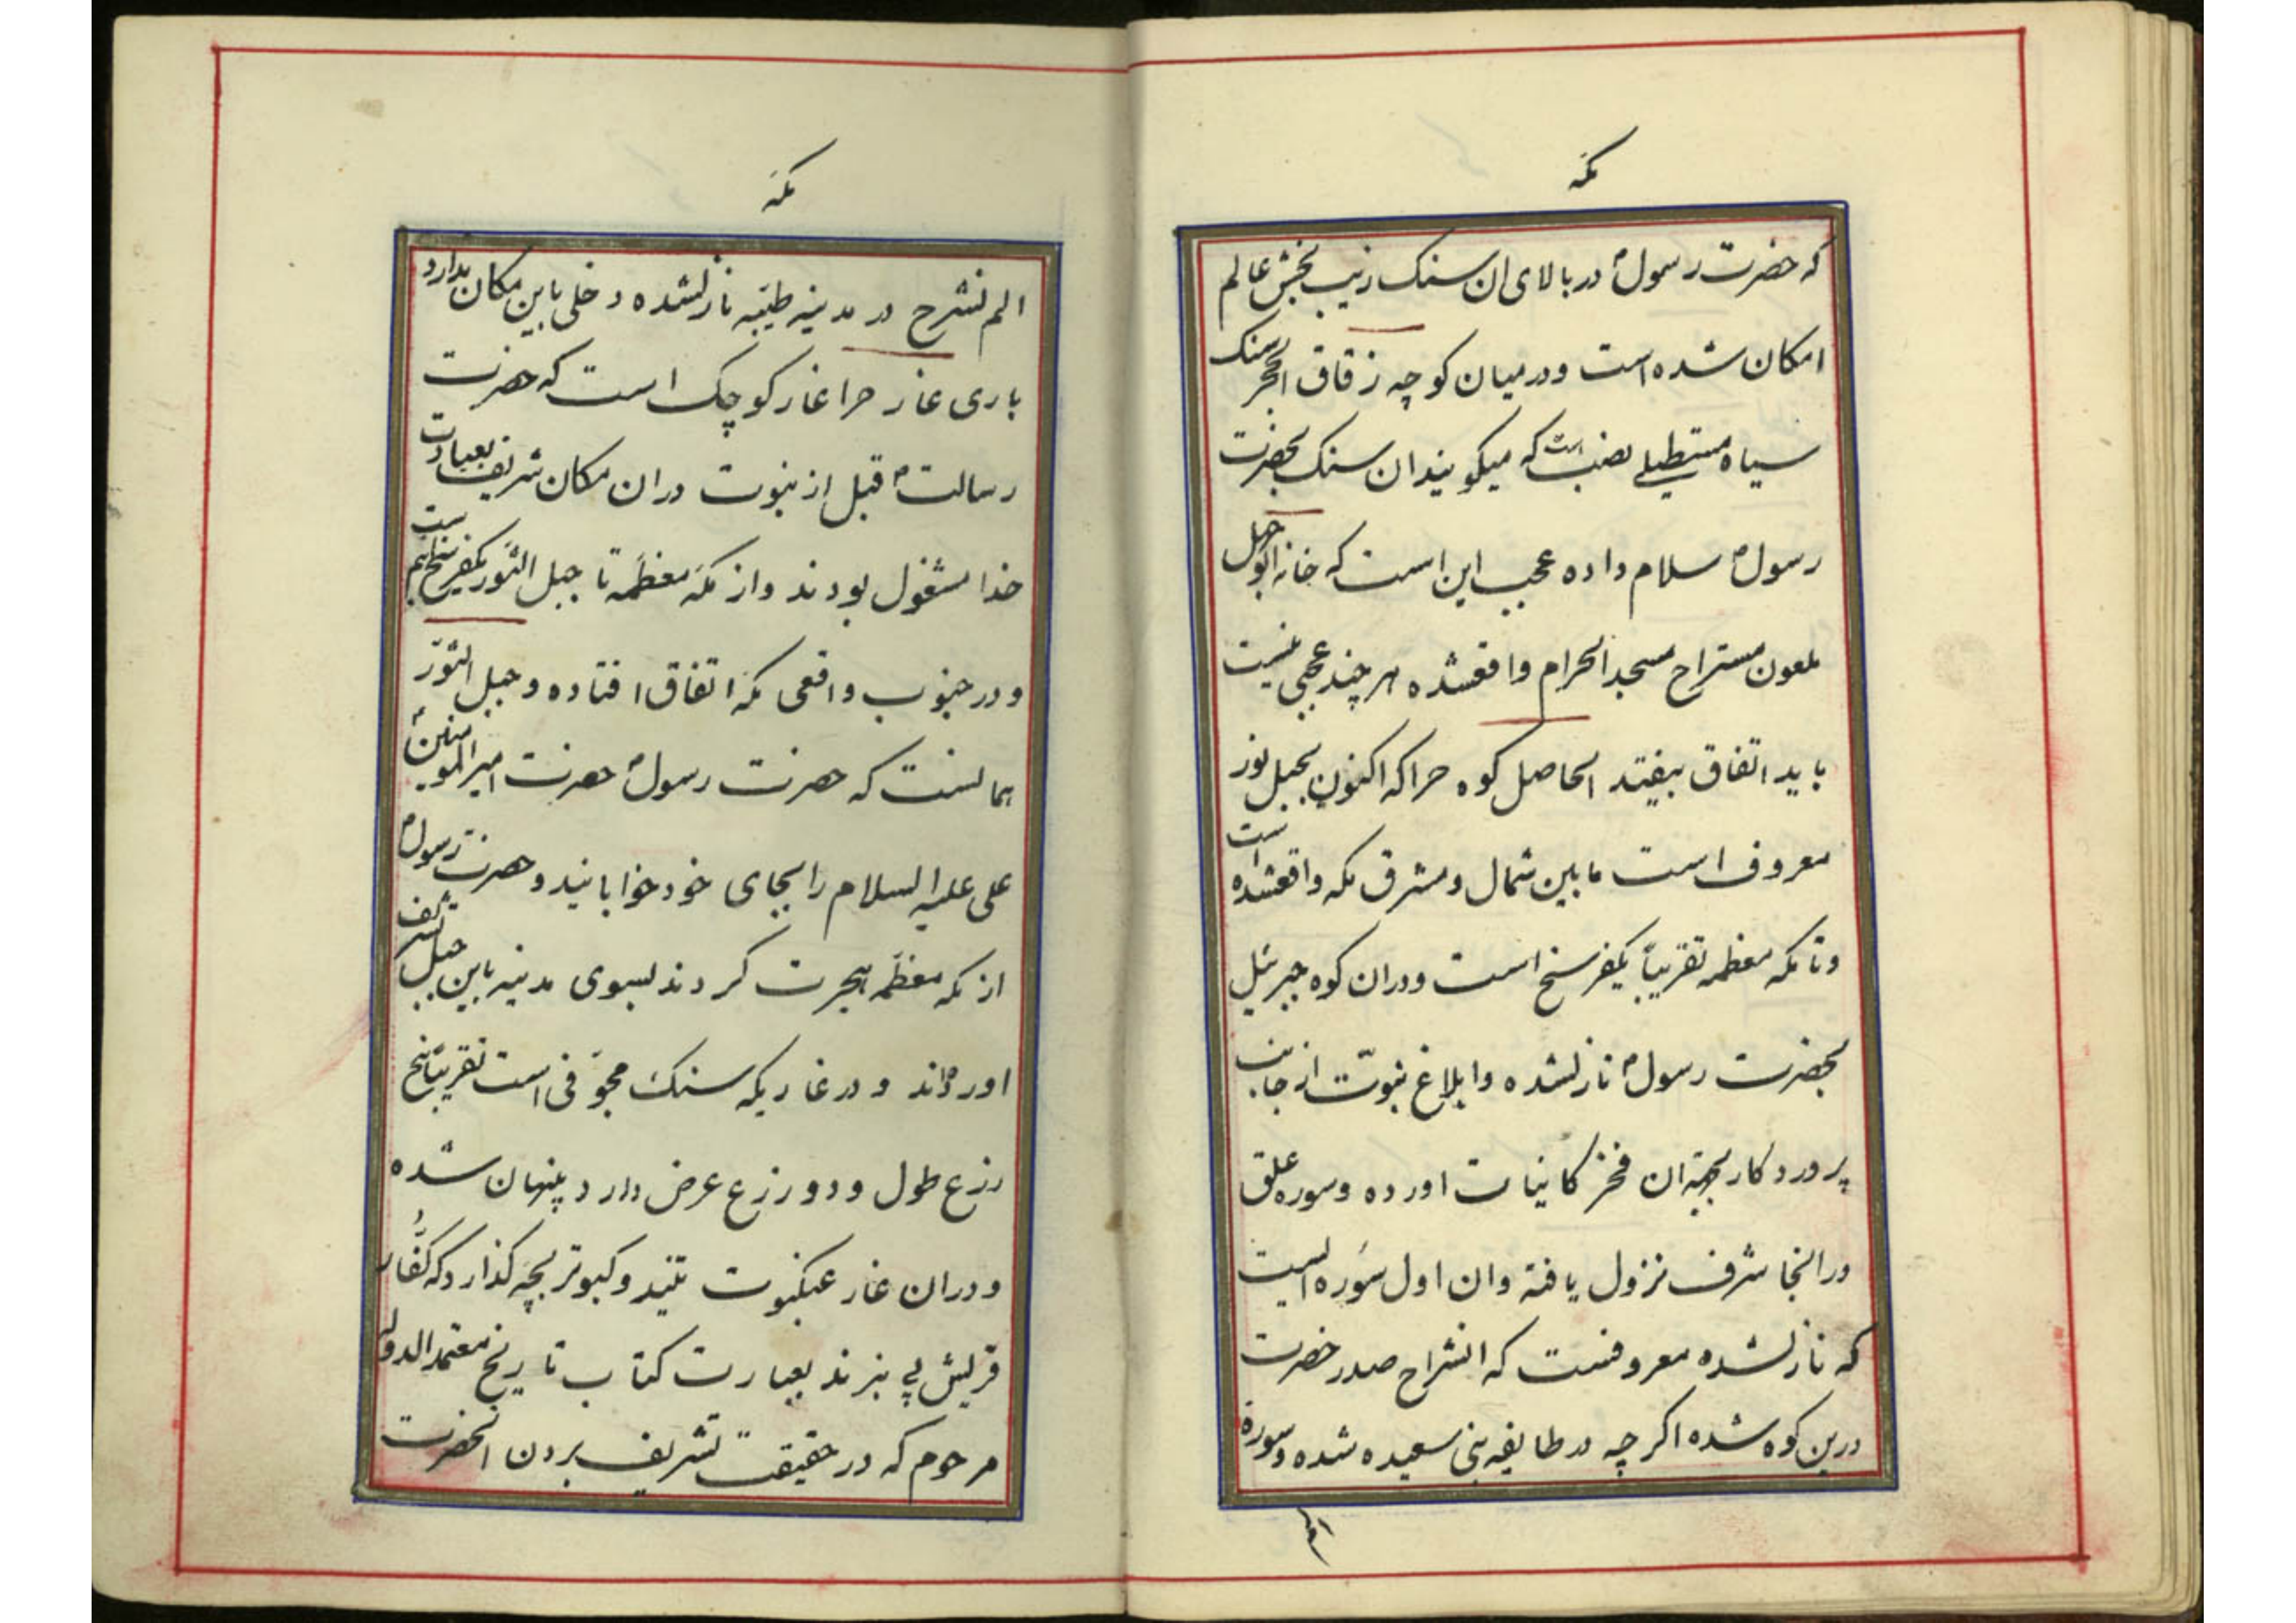 مکه
که حضرت رسول ص در بالای ان سنک زیب بخش عالم
امکان شده است و در میان کوچه زقاق الحجر سنک
سیاه مستطیلی نصب است که میکویند ان سنک بحضرت
رسول ص سلام داده عجب این است که خانه ابوجهل
ملعون مستراح مسجد الحرام واقعشده هر چند عجبی نیست
باید اتفاق بیفتد الحاصل کوه حرا که اکنون بجبل نور
معروف است مابین شمال و مشرق مکه واقعشده است
و تا مکه معظمه تقریباً یکفرسخ است و در ان کوه جبرئیل
بحضرت رسول ص نازلشده و ابلاغ نبوّت از جانب
پروردکار بجهة ان فخر کاینات اورده و سوره علق
در انجا شرف نزول یافته و ان اول سَوره ایست
که نازلشده معروفست که انشراح صدر حضرت
درین کوه شده اکر چه در طایفه بنی سعیده شده و سورهٔ
الم
مکه
الم نشرح در مدینه طیّبه نازلشده دخلی باین مکان ندارد
باری غار حرا غار کوچک است که حضرت
رسالت ص قبل از نبوت در ان مکان شریف بعبادت
خدا مشغول بودند و از مکه معظّمه تا جبل الثّور یکفرسخ است
و در جنوب واقعی مکه اتفاق افتاده و جبل الثّور
همانست که حضرت رسول ص حضرت امیر المومنین
علی علیه السلام را بجای خود خوابانید و حضرت رسول ص
از مکه معظّمه هجرت کردند بسوی مدینه باین جبل تشریف
اورده‌اند و در غاریکه سنک مجوّفی است تقریباً پنج
رزع طول و دو رزع عرض دارد پنهان شده
و در ان غار عنکبوت تنید و کبوتر بچه کذارد که کفّار
قریش پی نبرند بعبارت کتاب تاریخ معتمد الدوله
مرحوم که در حقیقت تشریف بردن انحضرت